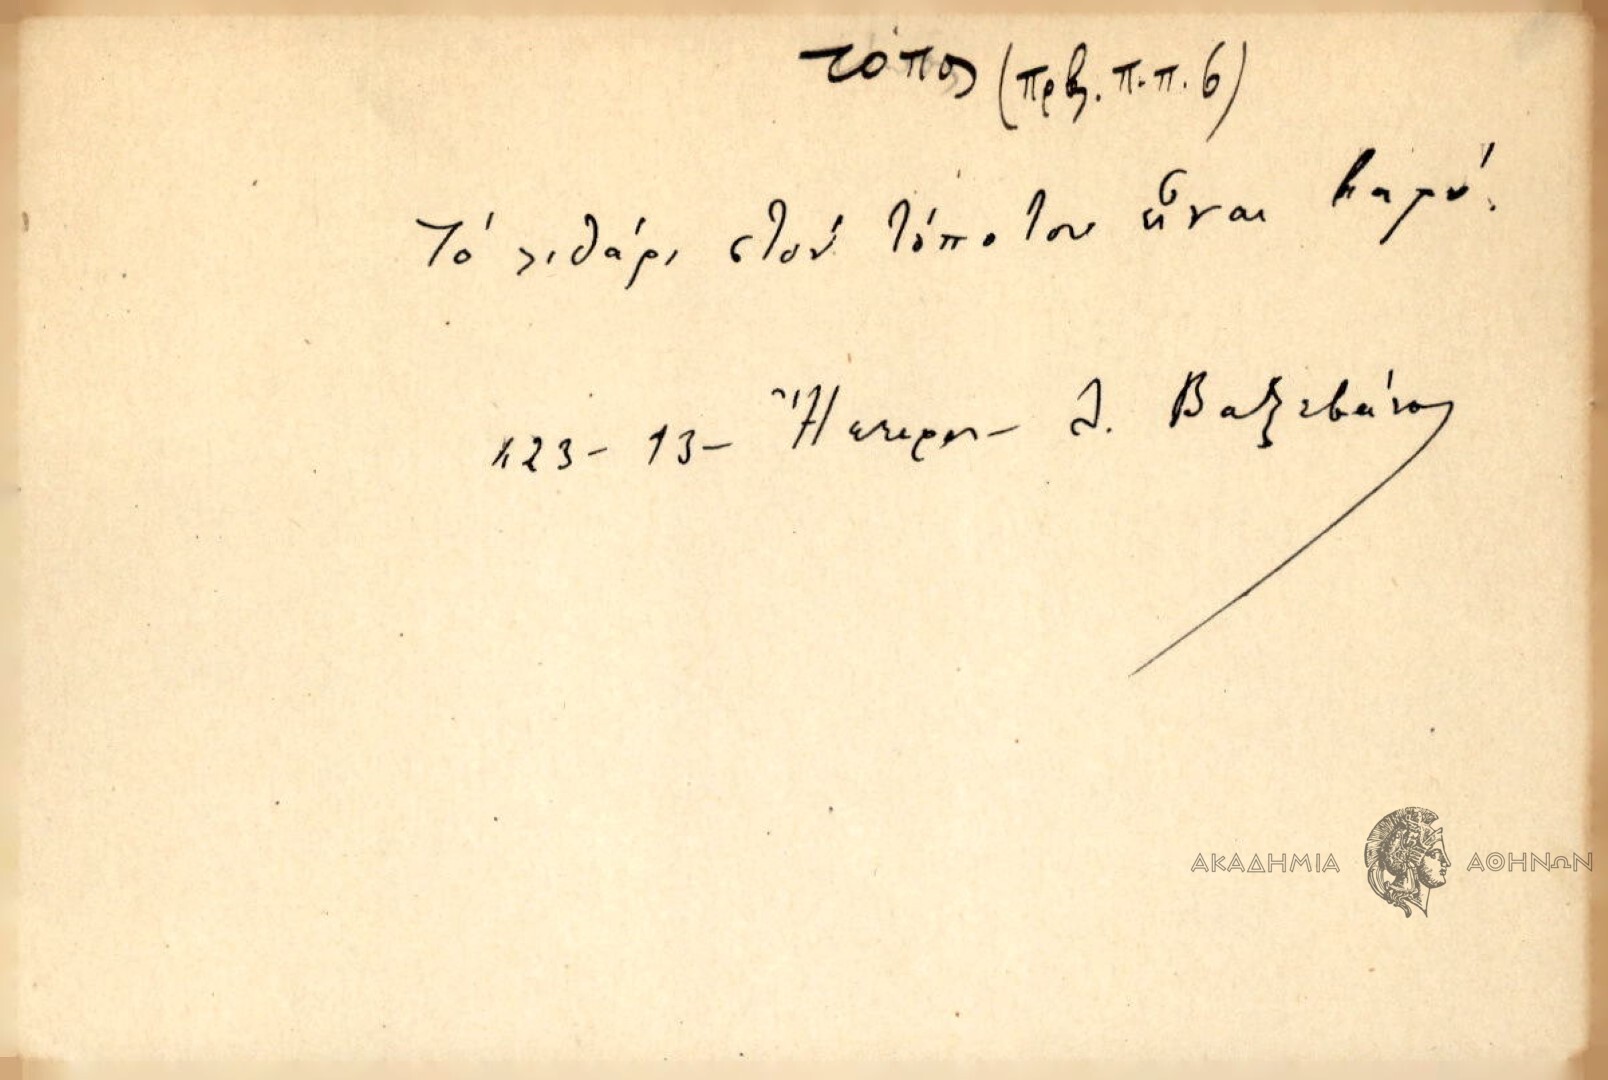 τόπος (πρβ. π.π. 6)
Τό λιθάρι στόν τόπο του εἶναι βαρύ.
123 - 13 - Ἤπειρος - Λ. Βαξεβάνος
ΑΚΑΔΗΜΙΑ ΑΘΗΝΩΝ